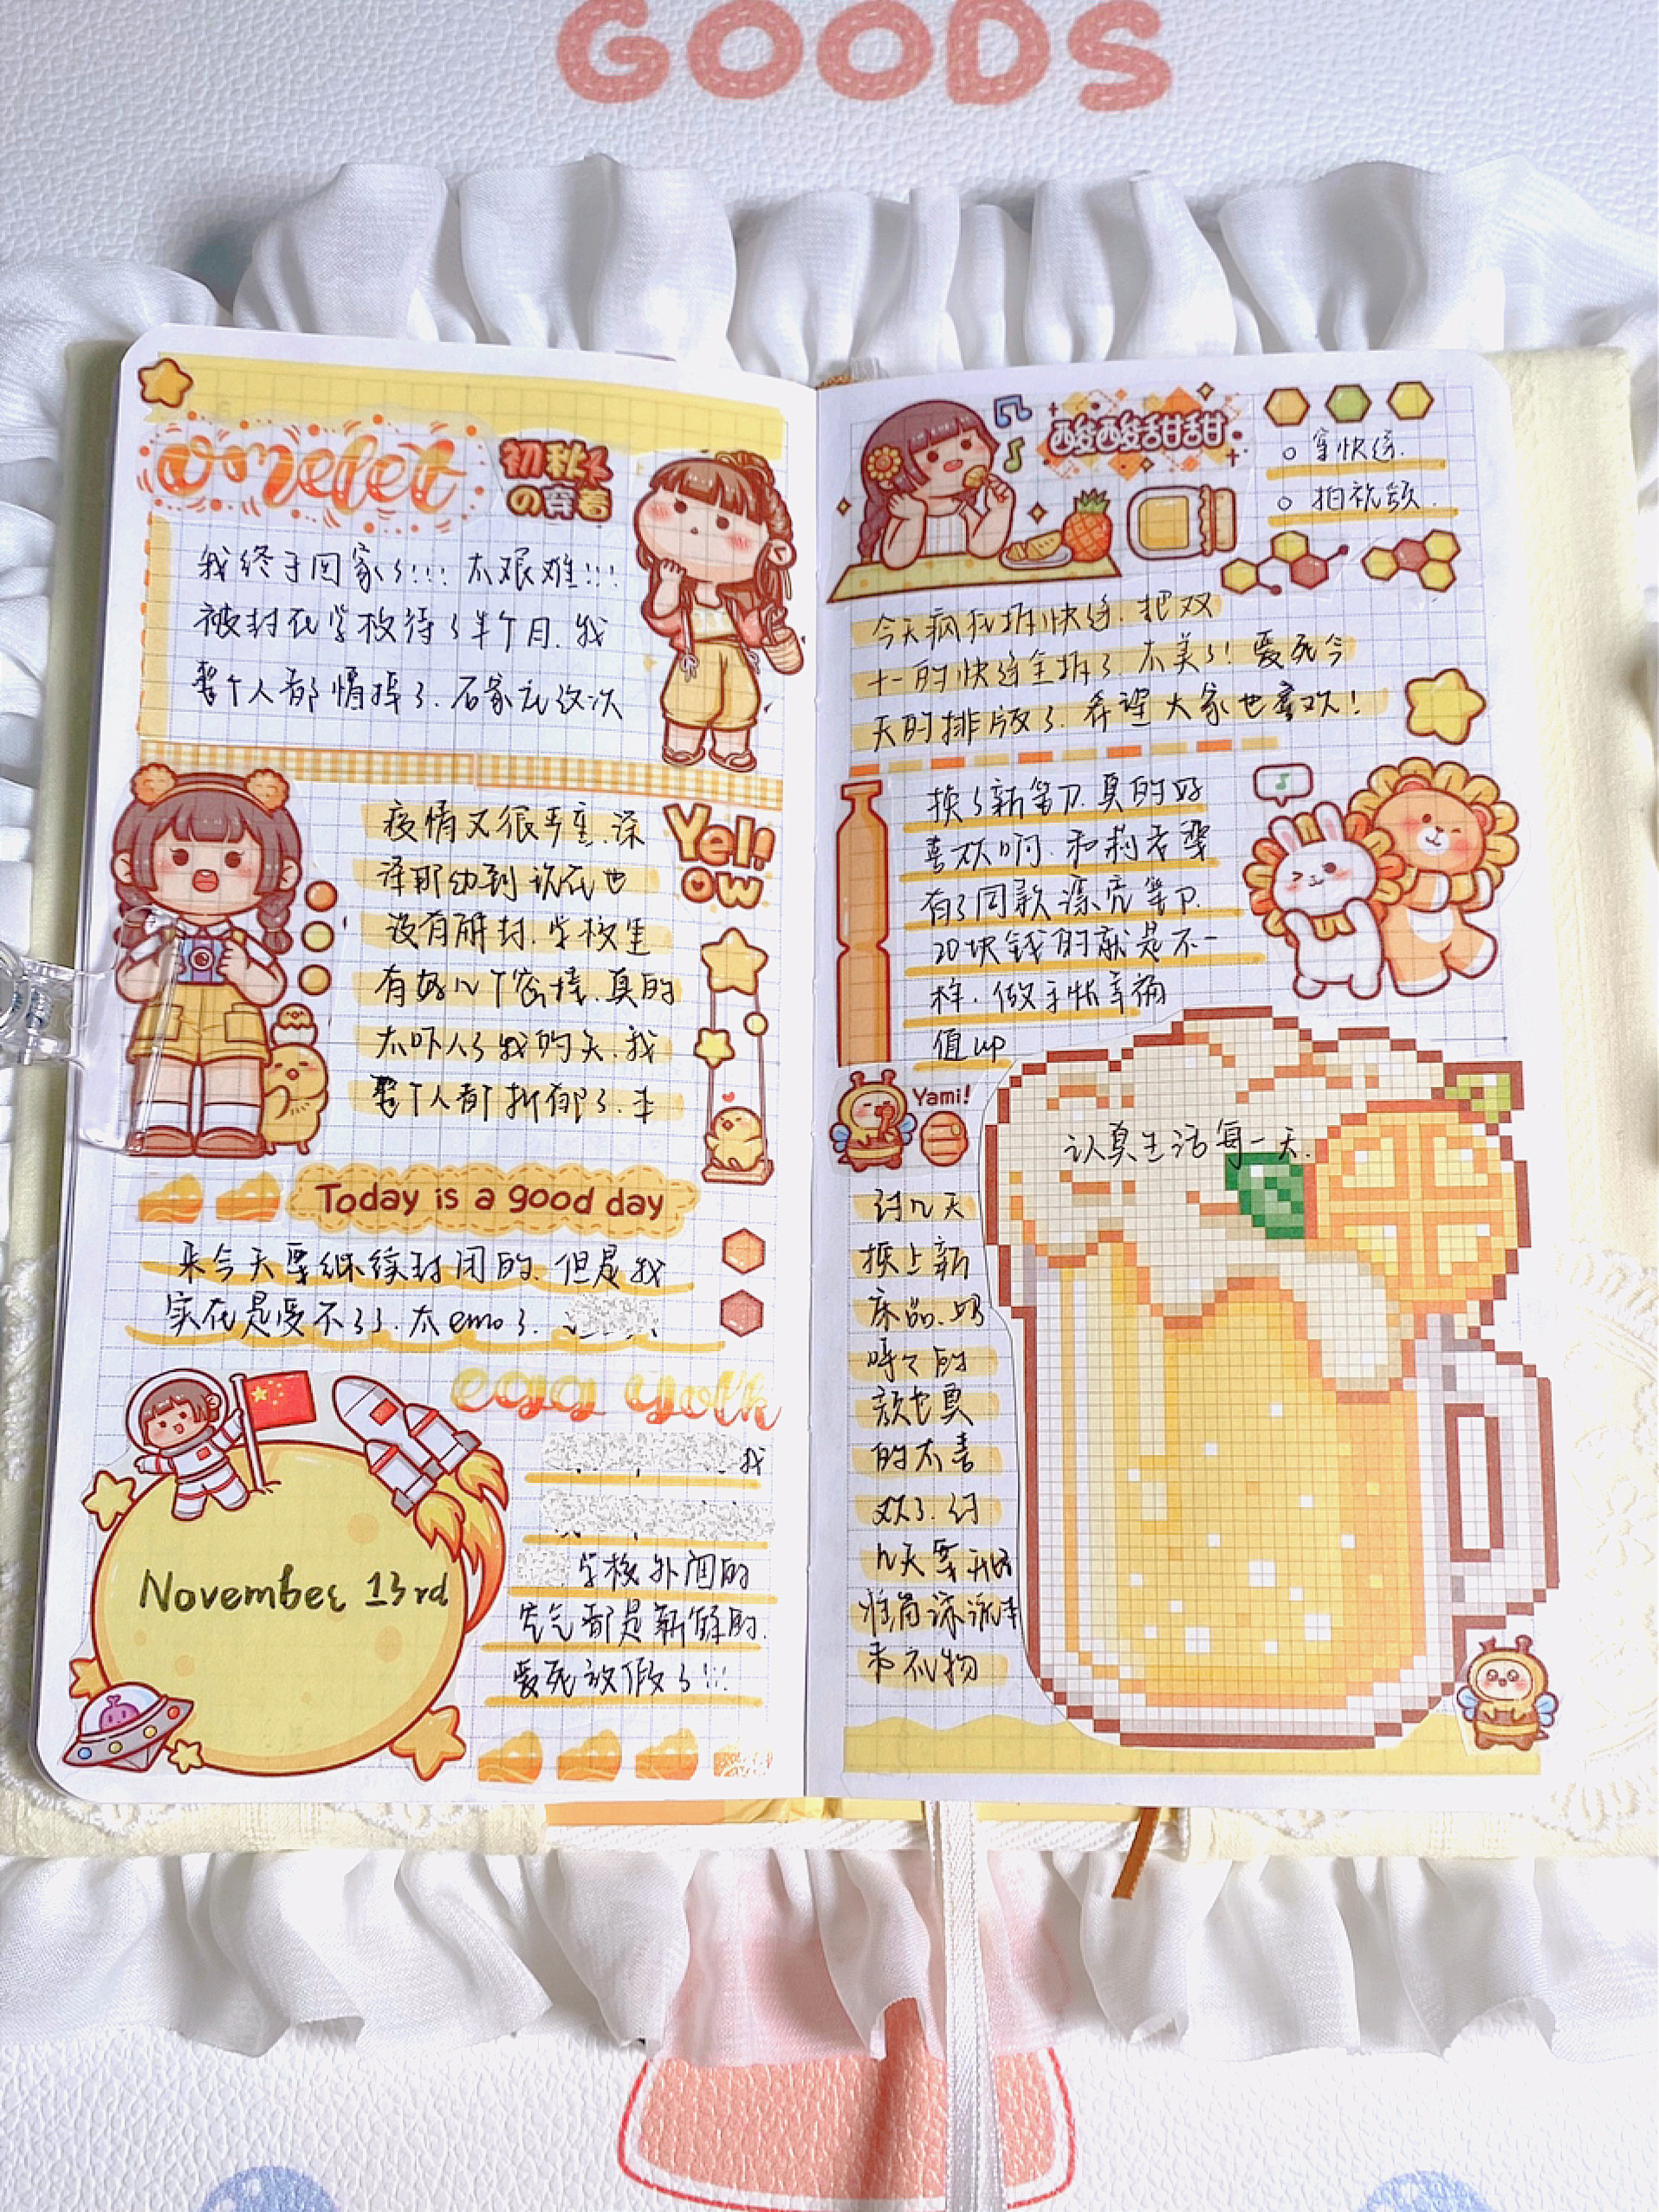 GOODS
omelet
初秋
の穿着
我终于回家了!!! 太艰难!!!
被封在学校待了半个月.我
整个人都懵掉了.石家庄这次
疫情又很严重.深
泽那边到现在也
没有解封.学校里
有好几个密接.真的
太吓人了我的天.我
整个人都抑郁了.本
Yell
ow
Today is a good day
来今天要继续封闭的.但是我
实在是受不了了.太emo了.
egg yolk
我
学校外面的
空气都是新鲜的.
爱死放假了!!!
November 13rd
酸酸甜甜
拿快递.
拍视频.
今天疯狂拆快递.把双
十一的快递全拆了.太美了! 爱死今
天的排版了.希望大家也喜欢!
换了新笔刀.真的好
喜欢啊.和莉君
有了同款漂亮笔刀.
20块钱的就是不一
样.做手帐幸福
值up
Yami!
认真生活每一天.
过几天
换上新
床品.奶
呼呼的
颜色真
的太喜
欢了.过
几天要
本
来礼物